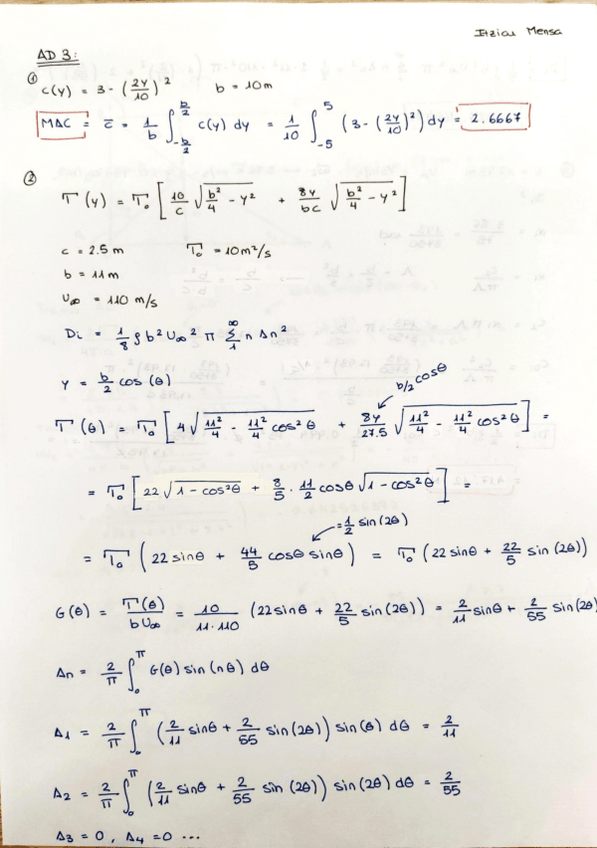 Itziar Mensa
AD 3:
① c(y) = 3 - (2y/10)² b = 10m
MAC = c̄ = 1/b ∫_{-b/2}^{b/2} c(y) dy = 1/10 ∫_{-5}^{5} (3 - (2y/10)²) dy = 2.6667
② Γ(y) = Γ₀ [10/c √(b²/4 - y²) + 8y/bc √(b²/4 - y²)]
c = 2.5 m Γ₀ = 10m²/s
b = 11m
U∞ = 110 m/s
Di = 1/8 ρ b² U∞² π Σ_1^∞ n An²
y = b/2 cos(θ)
b/2 cosθ
Γ(θ) = Γ₀ [4 √(11²/4 - 11²/4 cos²θ) + 8y/27.5 √(11²/4 - 11²/4 cos²θ)] =
= Γ₀ [22 √(1 - cos²θ) + 8/5 · 11/2 cosθ √(1 - cos²θ)] =
= 1/2 sin(2θ)
= Γ₀ (22 sinθ + 44/5 cosθ sinθ) = Γ₀ (22 sinθ + 22/5 sin(2θ))
G(θ) = Γ(θ)/bU∞ = 10/11·110 (22 sinθ + 22/5 sin(2θ)) = 2/11 sinθ + 2/55 sin(2θ)
An = 2/π ∫_0^π G(θ) sin(nθ) dθ
A1 = 2/π ∫_0^π (2/11 sinθ + 2/55 sin(2θ)) sin(θ) dθ = 2/11
A2 = 2/π ∫_0^π (2/11 sinθ + 2/55 sin(2θ)) sin(2θ) dθ = 2/55
A3 = 0, A4 = 0 ...